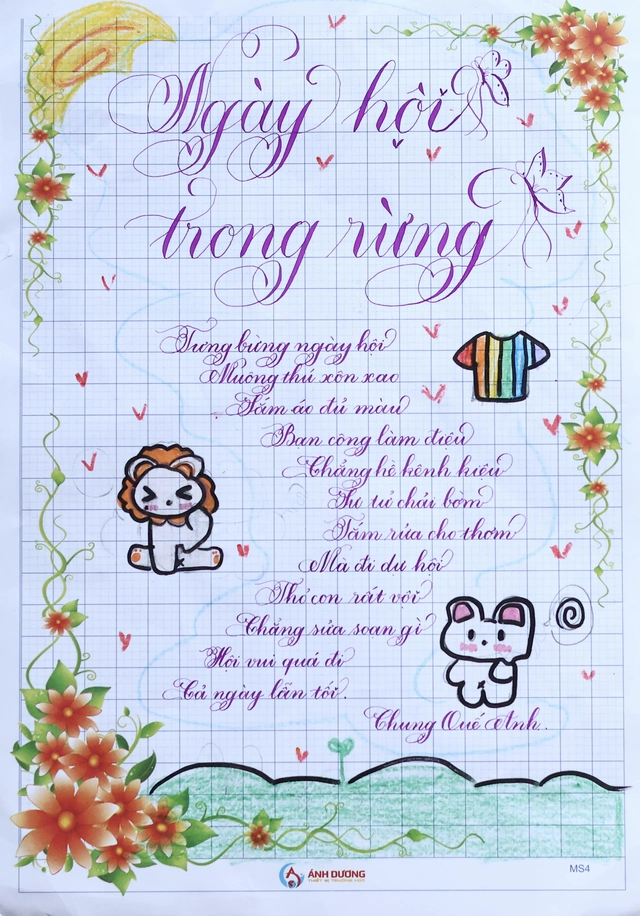 Ngày hội
trong rừng
Tưng bừng ngày hội
Muông thú xôn xao
Sắm áo đủ màu
Ban công làm điệu
Chẳng hề kênh kiệu
Sư tử chải bờm
Tắm rửa cho thơm
Mà đi dự hội
Thỏ con rất vội
Chẳng sửa soạn gì
Hội vui quá đi
Cả ngày lẫn tối.
Chung Quế Anh.
ÁNH DƯƠNG
MS4